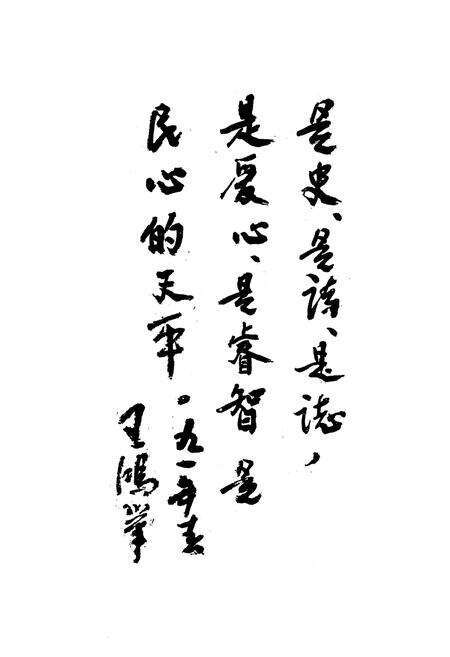 是史、是诗、是誌，
是爱心、是睿智 是
民心的天平。
九一年春
王鸿举